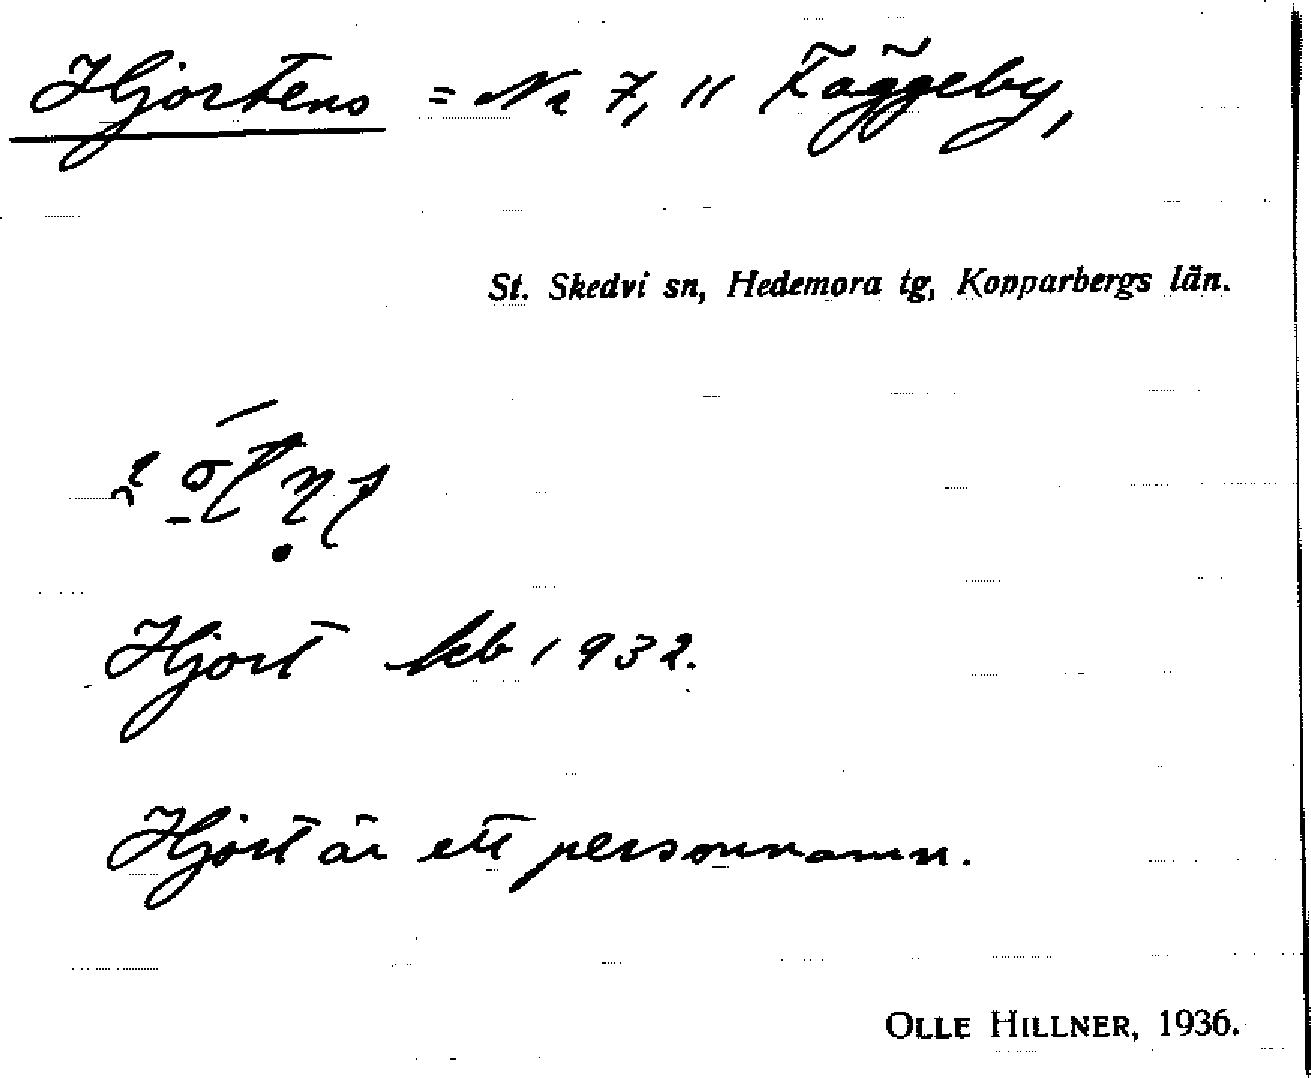 Hjortens = Nr 7, 11 Fäggeby,
St. Skedvi sn, Hedemora tg, Kopparbergs län.
Hjort kb 1932.
Hjort är ett personnamn.
OLLE HILLNER, 1936.